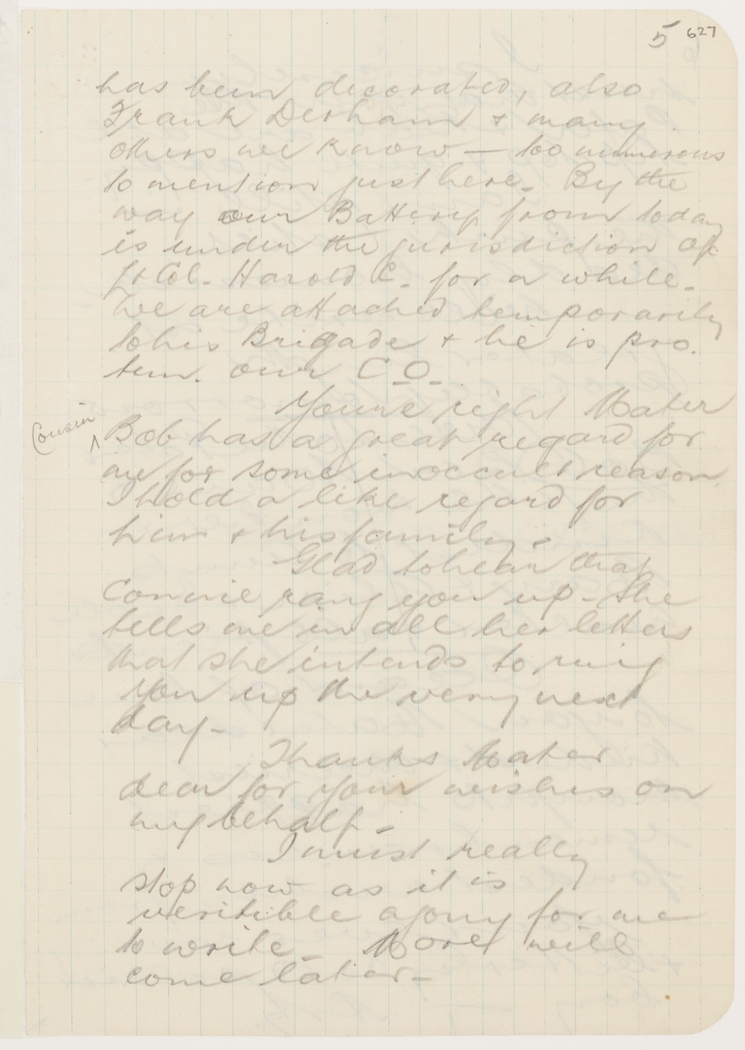 5 627
has been decorated, also
Frank Derham & many
others we know — too numerous
to mention just here. By the
way our Battery from today
is under the jurisdiction of
Lt Col. Harold C. for a while.
We are attached temporarily
to his Brigade & he is pro.
tem. our C.O.
Youre right Mater
Cousin
Bob has a great regard for
me for some inoccult reason.
I hold a like regard for
him & his family.
Glad to hear that
Connie rang you up - She
tells me in all her letters
that she intends to ring
you up the very next
day -
Thanks Mater
dear for your wishes on
my behalf -
I must really
stop now as it is
veritible agony for me
to write - More will
come later -